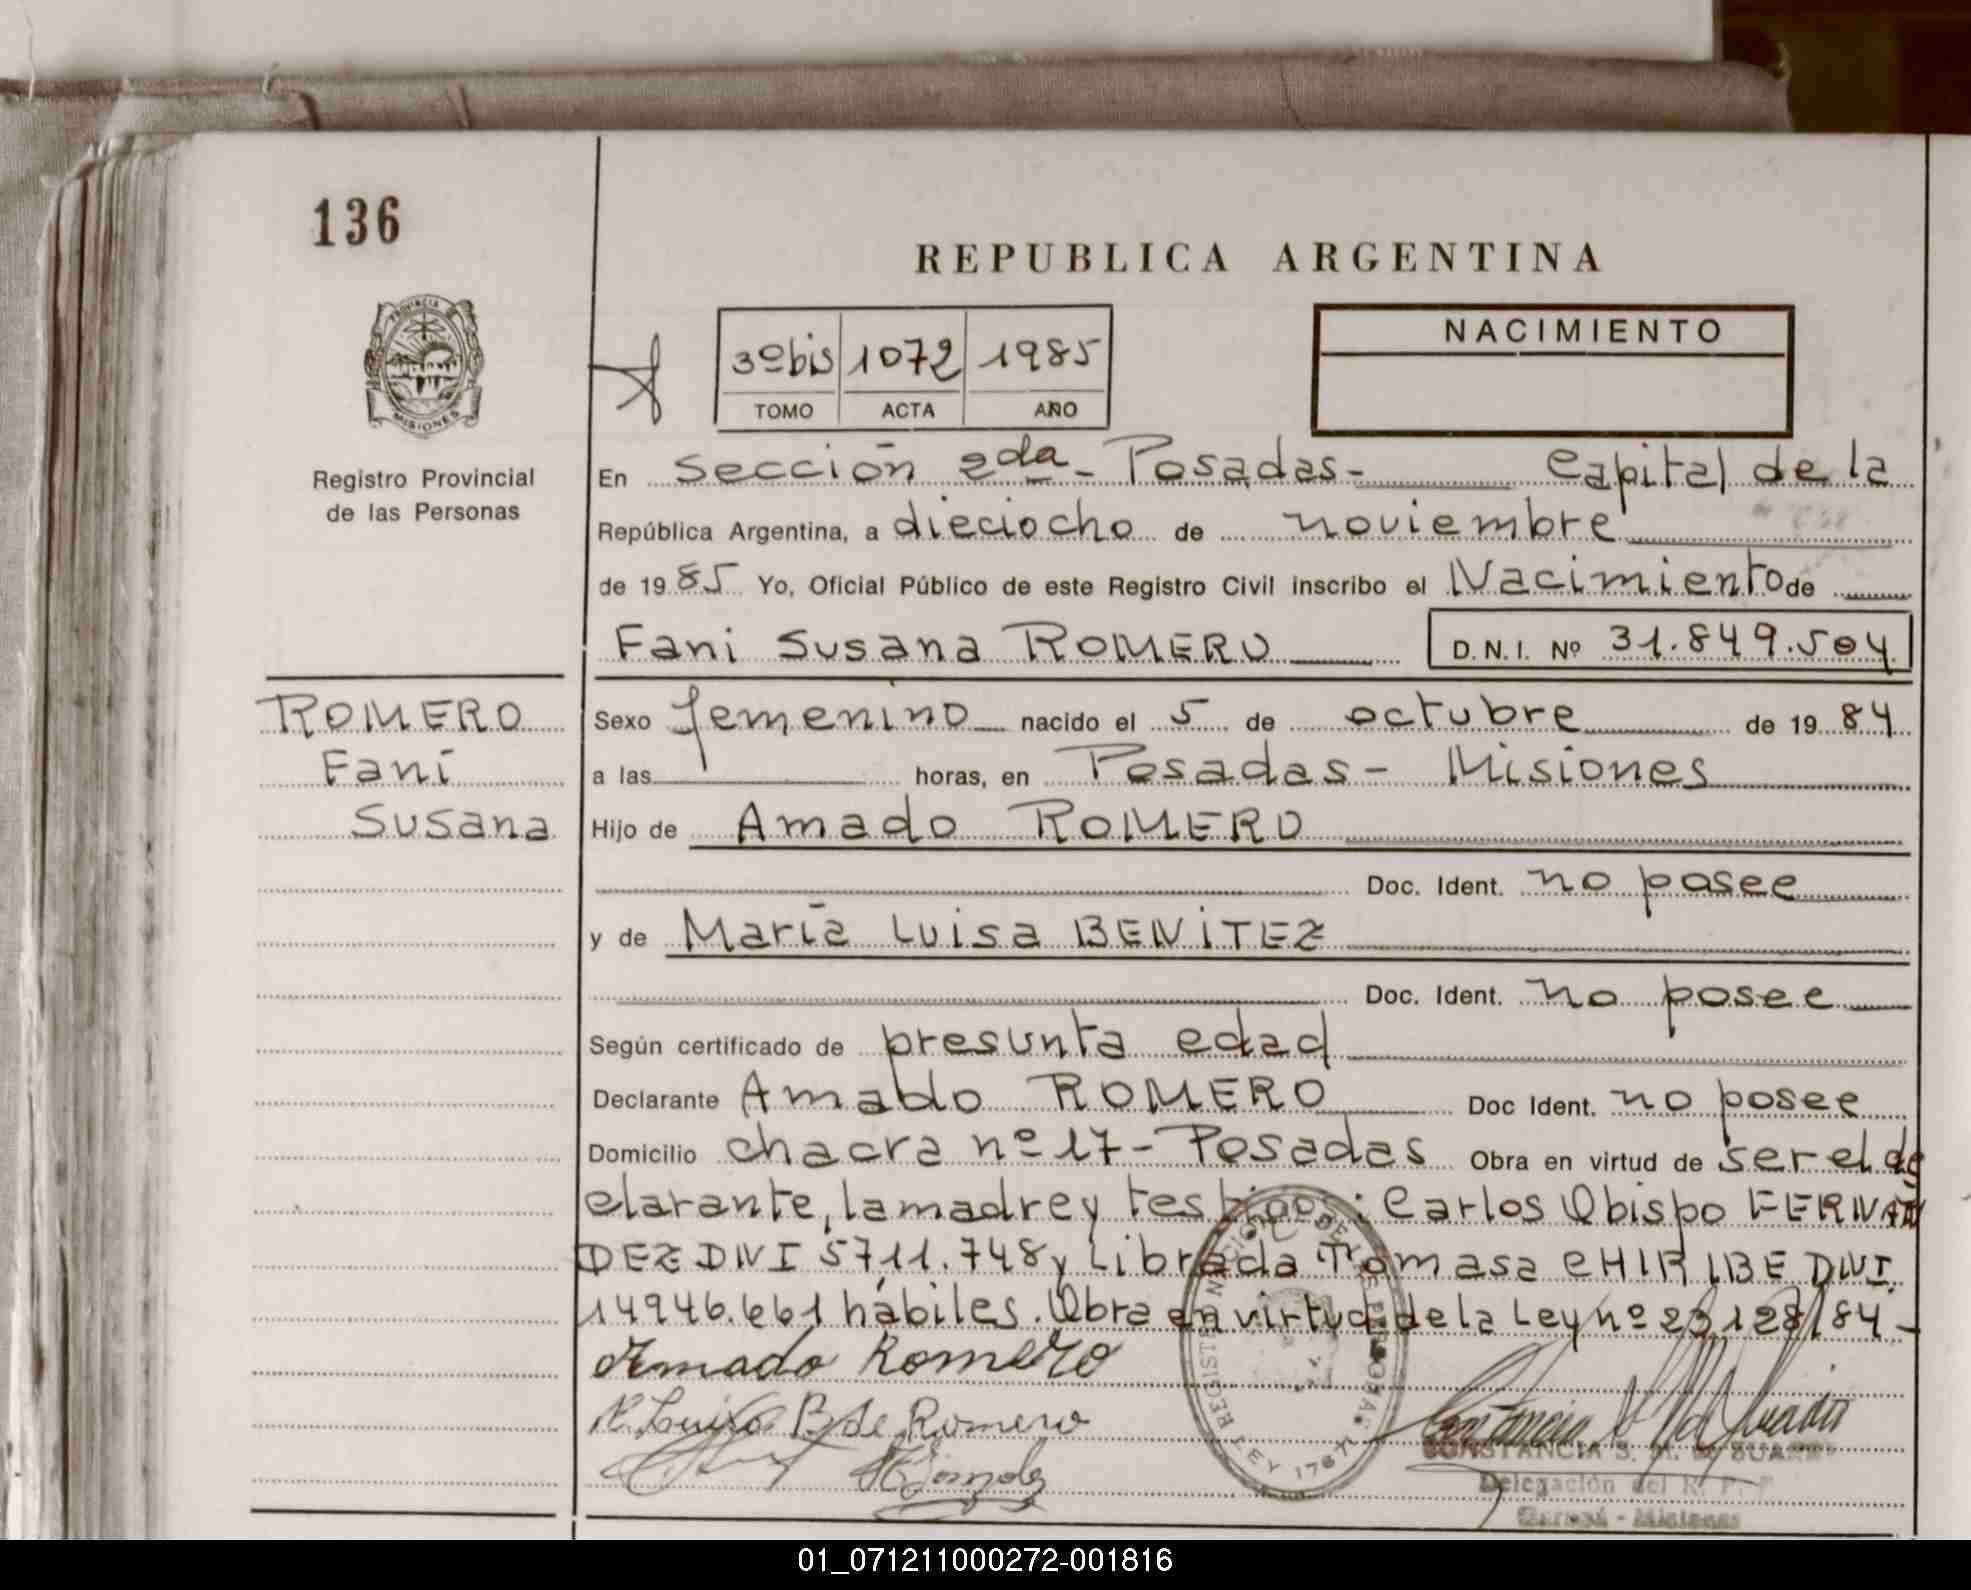 136
REPUBLICA ARGENTINA
PROVINCIA
MISIONES
Registro Provincial
de las Personas
3º bis 1072 1985
TOMO ACTA AÑO
NACIMIENTO
En Sección 2da - Posadas - Capital de la
República Argentina, a dieciocho de noviembre
de 1985 Yo, Oficial Público de este Registro Civil inscribo el Nacimiento de
Fani Susana ROMERO D.N.I. Nº 31.849.504
ROMERO
Fani
Susana
Sexo femenino nacido el 5 de octubre de 1984
a las horas, en Posadas - Misiones
Hijo de Amado ROMERO
Doc. Ident. no posee
y de María Luisa BENITEZ
Doc. Ident. no posee
Según certificado de presunta edad
Declarante Amado ROMERO Doc Ident. no posee
Domicilio chacra nº 17 - Posadas Obra en virtud de ser el de
clarante, la madre y testigos: Carlos Obispo FERNAN
DEZ DNI 5711.748 y Librada Tomasa CHIRIBE DNI
14946.661 hábiles. Obra en virtud de la Ley nº 23128/84 -
Amado Romero
M. Luisa B de Romero
CONSTANCIA S. M. D. SUAREZ
Delegación del R. P. P
Misiones
01_071211000272-001816